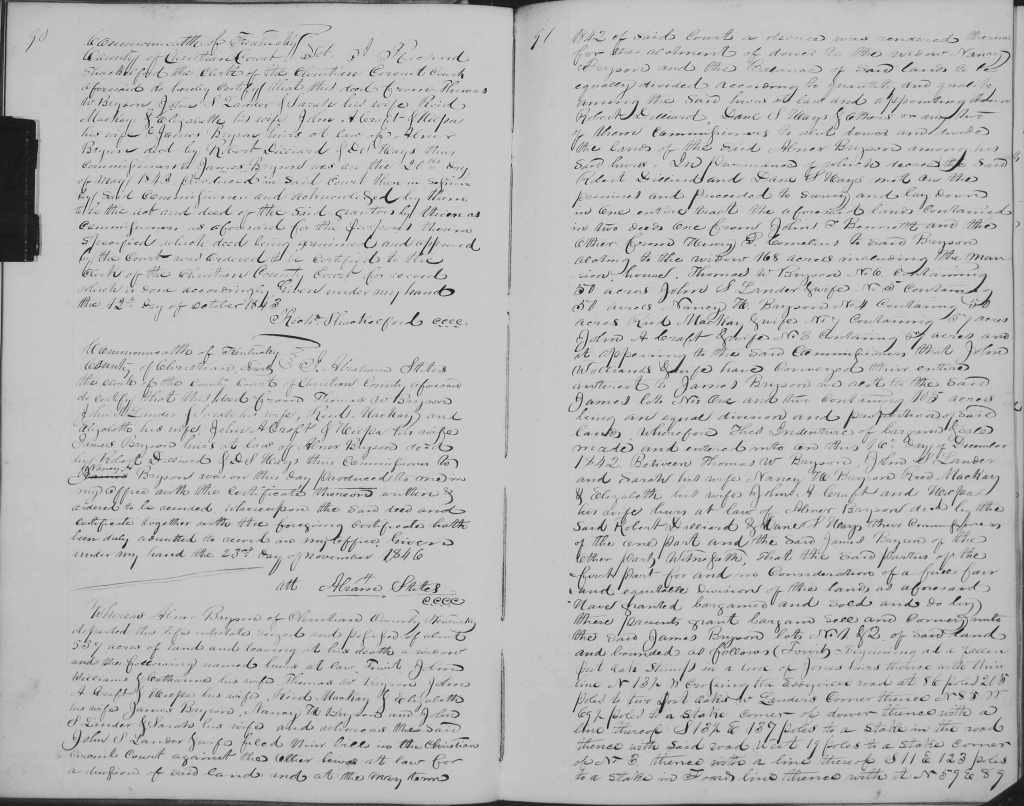 90
Commonwealth of Kentucky
County of Christian Court Sct. I Richard
Shackelford the Clerk of the Christian Circuit Court
aforesaid do hereby certify that this deed from Thomas
W Bryson John S Lander & Sarah his wife Reid
Mackay & Elizabeth his wife John A Craft &
his wife & James Bryson heirs at law of Abner
Bryson decd by Robert Dillard & D S Hays their
Commissioners to James Bryson was on the day
of May 1843 produced in said Court then in session
by said Commissioners and acknowledged by them
to be the act and deed of the said grantors by them as
Commissioners as aforesaid for the purposes therein
specified which deed being examined and approved
by the Court was ordered to be certified to the
Clerk of the Christian County Court for record
which is done accordingly Given under my hand
the 12th Day of October 1843
Richd. Shackelford cccc.
Commonwealth of Kentucky
County of Christian, I, Abraham Stites
the clerk of the county Court of Christian County aforesaid
do certify that this deed from Thomas W Bryson
John S Lander & Sarah his wife, Reid Mackay and
Elizabeth his wife John A Craft & his wife
James Bryson heirs at law of Abner Bryson decd
by Robert Dillard & D S Hays their Commissioners to
Nancy H Bryson was on this day produced to me in
my office with the certificate thereon written &
ordered to be recorded whereupon the said deed and
certificate together with the foregoing certificate hath
been duly admitted to record in my office Given
under my hand the 23rd Day of November 1846
att Abram Stites
cccc
Whereas Abner Bryson of Christian County Kentucky
departed this life intestate seized and possessed of about
557 acres of land and leaving at his death a widow
and the following named heirs at law, Towit John
Williams & Catharine his wife Thomas W Bryson John
A Craft & his wife, Reid Mackay & Elizabeth
his wife James Bryson, Nancy H Bryson and John
S Lander & Sarah his wife and whereas the said
John S Lander & wife filed their bill in the Christian
Circuit Court against the other heirs at law for
a division of said land and at the may term
91
1842 of said Court a decree was rendered therein
for the alotment of dower to the widow Nancy
Bryson and the Balance of said lands to be
equally divided according to quantity and quality
among the said heirs at law and appointing
Robert Dillard, Dane S Hays & others or any two
of them Commissioners to alot dower and divide
the lands of the said Abner Bryson among his
said heirs. In pursuance of which decree the said
Robert Dillard and Dane S Hays met on the
premises and proceeded to survey and lay down
in one entire tract the aforesaid lands contained
in two deeds one from John F Bennett and the
other from Henry P Cornelius to said Bryson
aloting to the widow 168 acres including the man
sion house. Thomas W Bryson No 6 containing
50 acres John S Lander & wife No 5 Containing
50 acres Nancy H Bryson No 4 Containing 50
acres Reid Mackay & wife No 7 Containing 57 acres
John A Craft & wife No 3 Containing 57 acres and
it appearing to the said Commissioners that John
Williams & wife have conveyed their entire
interest to James Bryson we alot to the said
James lots No One and two containing 105 acres
being an equal division and proportion of said
land. Wherefore This Indenture of bargain & sale
made and entered into on this Day of December
1842 Between Thomas W Bryson, John S Lander
and Sarah his wife Nancy H Bryson Reid Mackay
& Elizabeth his wife & John A Craft and
his wife heirs at law of Abner Bryson decd by the
said Robert Dillard & Dane S Hays their Commissioners
of the one part and the said James Bryson of the
other part, Witnesseth, that the said parties of the
first part for and in Consideration of a fair
and equitable Division of the land as aforesaid
Have granted bargained and sold and do by
these presents grant bargain sell and convey unto
the said James Bryson lots No 1 & 2 of said land
and bounded as follows (Towit) Beginning at a
post oak stump in a line of Jones heirs thence with their
line N 13½ W crossing the road at 86 poles 205
poles to two post oaks in Landers corner thence N 85 W
69½ poles to a stake corner of dower thence with a
line thereof S 13½ E 187 poles to a stake in the road
thence with said road west 19 poles to a stake corner
of No 3 thence with a line thereof S 11 E 123 poles
to a stake in line thence with it N 59 E 89